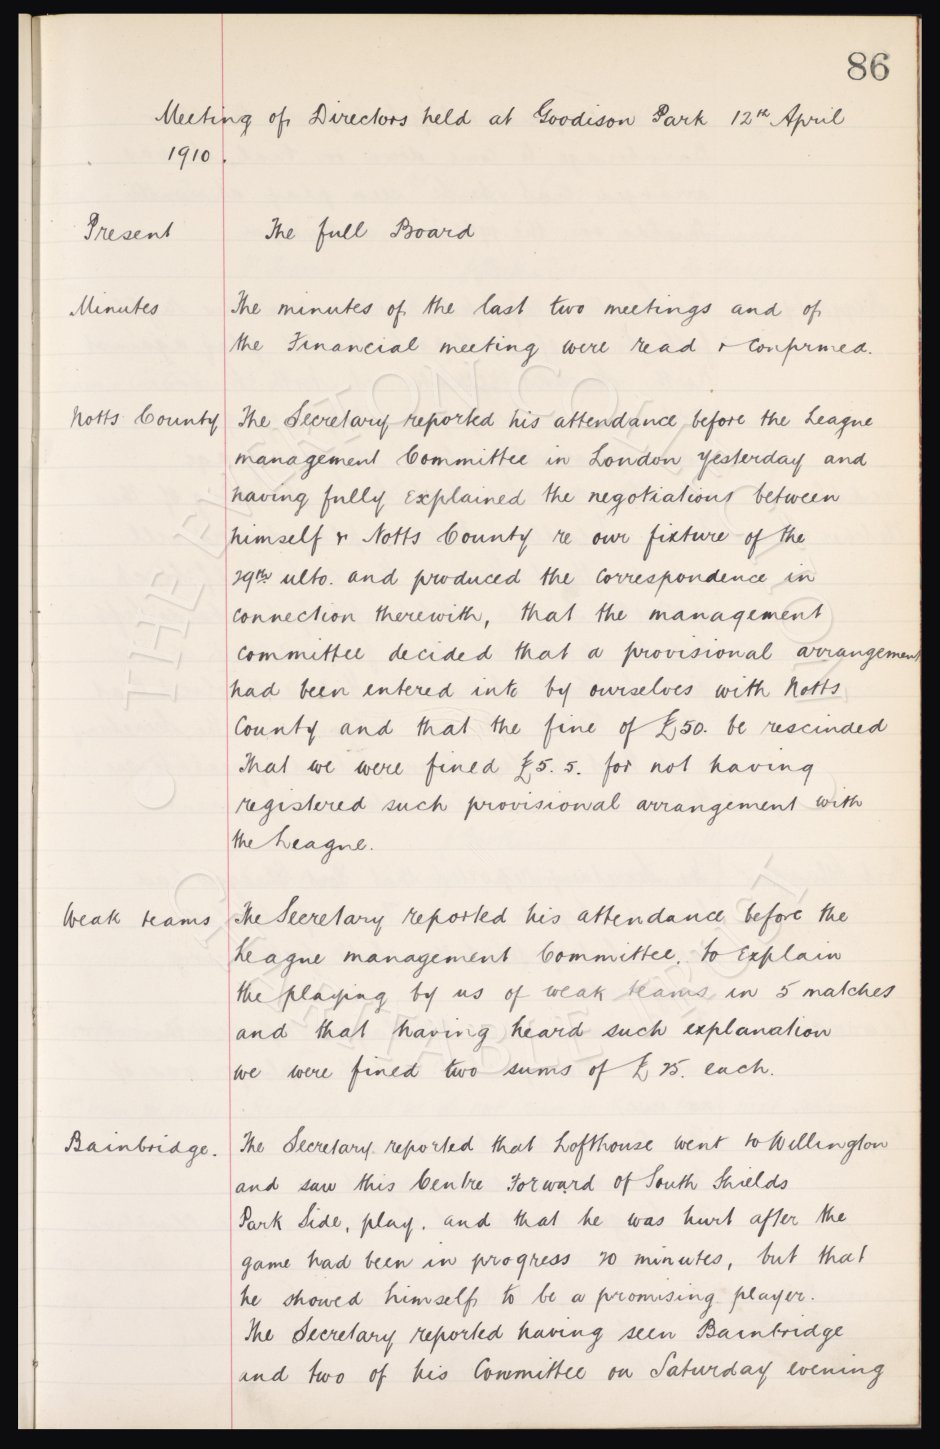 86
Meeting of Directors held at Goodison Park 12th April
1910.
Present The full Board
Minutes The minutes of the last two meetings and of
the Financial meeting were read & confirmed.
Notts County The Secretary reported his attendance before the League
management Committee in London yesterday and
having fully explained the negotiations between
himself & Notts County re our fixture of the
29th ulto. and produced the correspondence in
connection therewith, that the management
committee decided that a provisional arrangement
had been entered into by ourselves with Notts
County and that the fine of £50. be rescinded
That we were fined £5. 5. for not having
registered such provisional arrangement with
the League.
Weak teams The Secretary reported his attendance before the
League management Committee, to explain
the playing by us of weak teams in 5 matches
and that having heard such explanation
we were fined two sums of £25. each.
Bainbridge. The Secretary reported that Lofthouse went to Willington
and saw this Centre Forward of South Shields
Park Side, play. and that he was hurt after the
game had been in progress 20 minutes, but that
he showed himself to be a promising player.
The Secretary reported having seen Bainbridge
and two of his Committee on Saturday evening